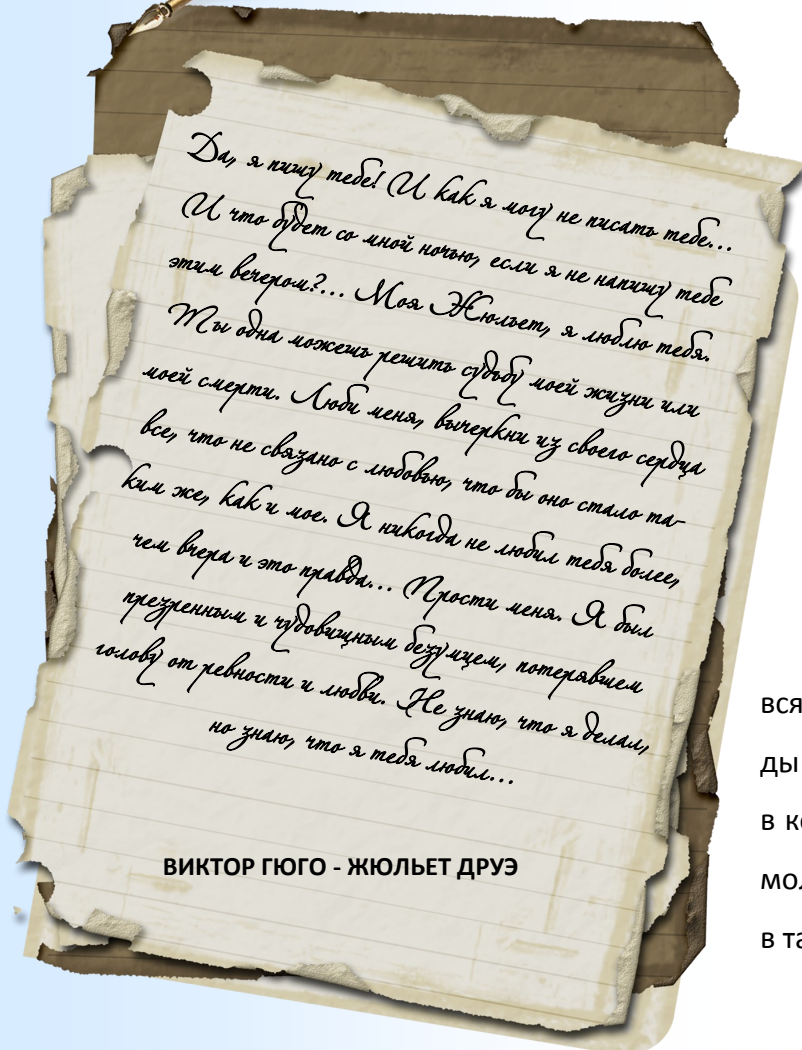 Да, я пишу тебе! И как я могу не писать тебе...
И что будет со мной ночью, если я не напишу тебе
этим вечером?... Моя Жюльет, я люблю тебя.
Ты одна можешь решить судьбу моей жизни или
моей смерти. Люби меня, вычеркни из своего сердца
все, что не связано с любовью, что бы оно стало та-
ким же, как и мое. Я никогда не любил тебя более,
чем вчера и это правда... Прости меня. Я был
презренным и чудовищным безумцем, потерявшем
голову от ревности и любви. Не знаю, что я делал,
но знаю, что я тебя любил...
ВИКТОР ГЮГО - ЖЮЛЬЕТ ДРУЭ
вся
ды
в
в